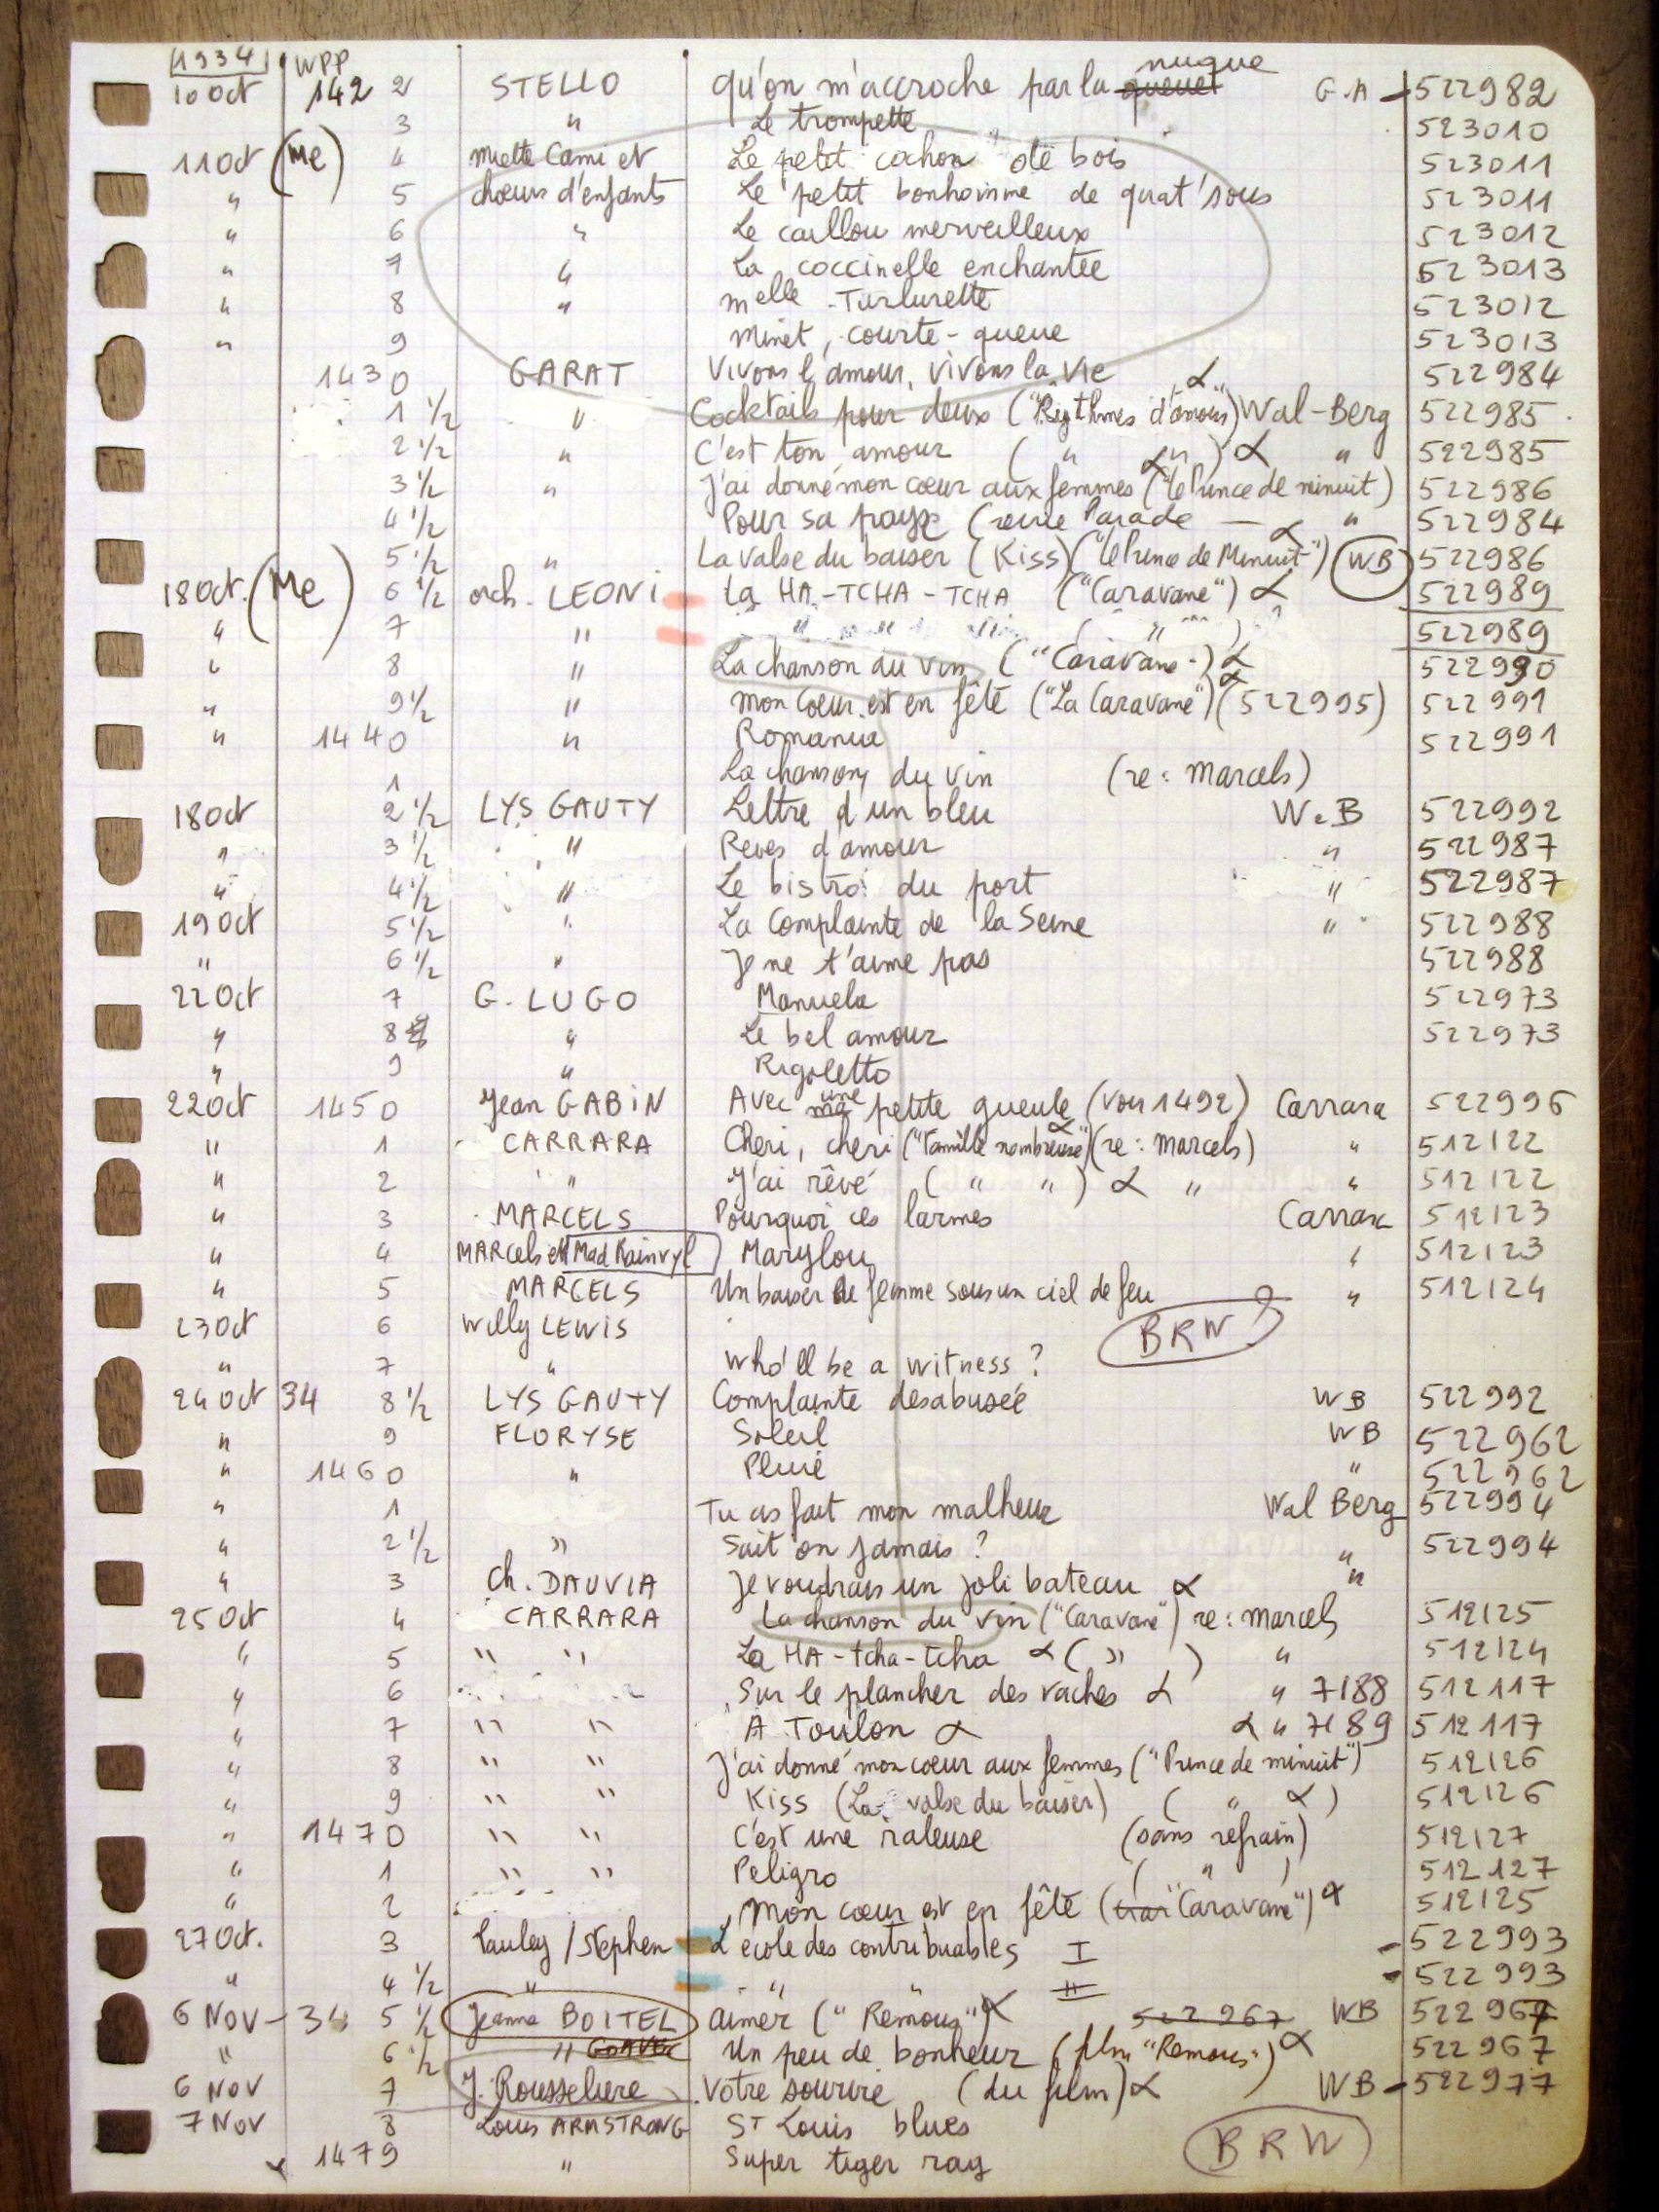 1934 WPP nuque
10 Oct 142 2 STELLO qu'on m'accroche par la queue G.A - 522982
3 " Le trompette 523010
11 Oct (Me) 4 Miette Cami et Le petit cochon de bois 523011
" 5 chœurs d'enfants Le petit bonhomme de quat'sous 523011
" 6 " Le caillou merveilleux 523012
" 7 " La coccinelle enchantée 523013
" 8 " Melle Turlurette 523012
" 9 Minet, courte-queue 523013
143 0 GARAT Vivons l'amour, vivons la vie 522984
1 1/2 " Cocktails pour deux ("Rythmes d'amour") α Wal-Berg 522985
2 1/2 " C'est ton amour ( " " ) α " 522985
3 1/2 " J'ai donné mon cœur aux femmes ("le Prince de minuit") α 522986
4 1/2 Pour sa paye (revue Parade — " 522984
5 1/2 " La valse du baiser (Kiss) ("le Prince de Minuit") α WB 522986
18 Oct. (Me) 6 1/2 orch. LEONI La HA-TCHA-TCHA ("Caravane") α 522989
" 7 " " " " ( " ) 522989
" 8 " La chanson du vin ("Caravane") α 522990
" 9 1/2 " Mon Coeur est en fête ("La Caravane") α (522995) 522991
" 144 0 " Romania 522991
1 La chanson du vin (re: Marcels)
18 Oct 2 1/2 LYS GAUTY Lettre d'un bleu W.B 522992
" 3 1/2 " Reves d'amour " 522987
" 4 1/2 " Le bistro du port " 522987
19 Oct 5 1/2 " La Complainte de la Seine " 522988
" 6 1/2 " Je ne t'aime pas 522988
22 Oct 7 G. LUGO Manuela 522973
" 8 " Le bel amour 522973
" 9 " Rigoletto
22 Oct 145 0 Jean GABIN Avec ma une petite gueule (voir 1492) Carrara 522996
" 1 CARRARA Cheri, cheri ("Famille nombreuse") α (re: Marcels) " 512122
" 2 " J'ai rêvé ( " " ) α " " 512122
" 3 MARCELS Pourquoi ces larmes Carrara 512123
" 4 MARCels et Mad Rainvyl Marylou " 512123
" 5 MARCELS Un baiser de femme sous un ciel de feu " 512124
23 Oct 6 Willy LEWIS BRW ?
" 7 " Who'll be a witness ?
24 Oct 34 8 1/2 LYS GAUTY Complainte desabusée WB 522992
" 9 FLORYSE Soleil WB 522962
" 146 0 " Pluie " 522962
" 1 Tu as fait mon malheur Wal Berg 522994
" 2 1/2 " Sait on jamais ? " 522994
" 3 Ch. DAUVIA Je voudrais un joli bateau α "
25 Oct 4 CARRARA La chanson du vin ("Caravane") re: Marcels 512125
" 5 " " La HA-tcha-tcha α ( " ) " 512124
" 6 Sur le plancher des vaches α " 7188 512117
" 7 " " A Toulon α α " 7189 512117
" 8 " " J'ai donné mon coeur aux femmes ("Prince de minuit") 512126
" 9 " " Kiss (La valse du baiser) ( " α ) 512126
" 147 0 " " C'est une raleuse (sans refrain) 512127
" 1 " " Peligro ( " ) 512127
" 2 Mon cœur est en fête ("Caravane") α 512125
27 Oct. 3 Pauley / Stephen L'école des contribuables I - 522993
" 4 1/2 " " II - 522993
6 Nov - 34 5 1/2 Jeanne BOITEL aimer ("Remous") α 522967 WB 522967
" 6 1/2 " Un peu de bonheur (film "Remous") α 522967
6 Nov 7 J. Rousseliere Votre sourire (du film) α WB - 522977
7 Nov 8 Louis ARMSTRONG St Louis blues
1479 " Super tiger rag BRW